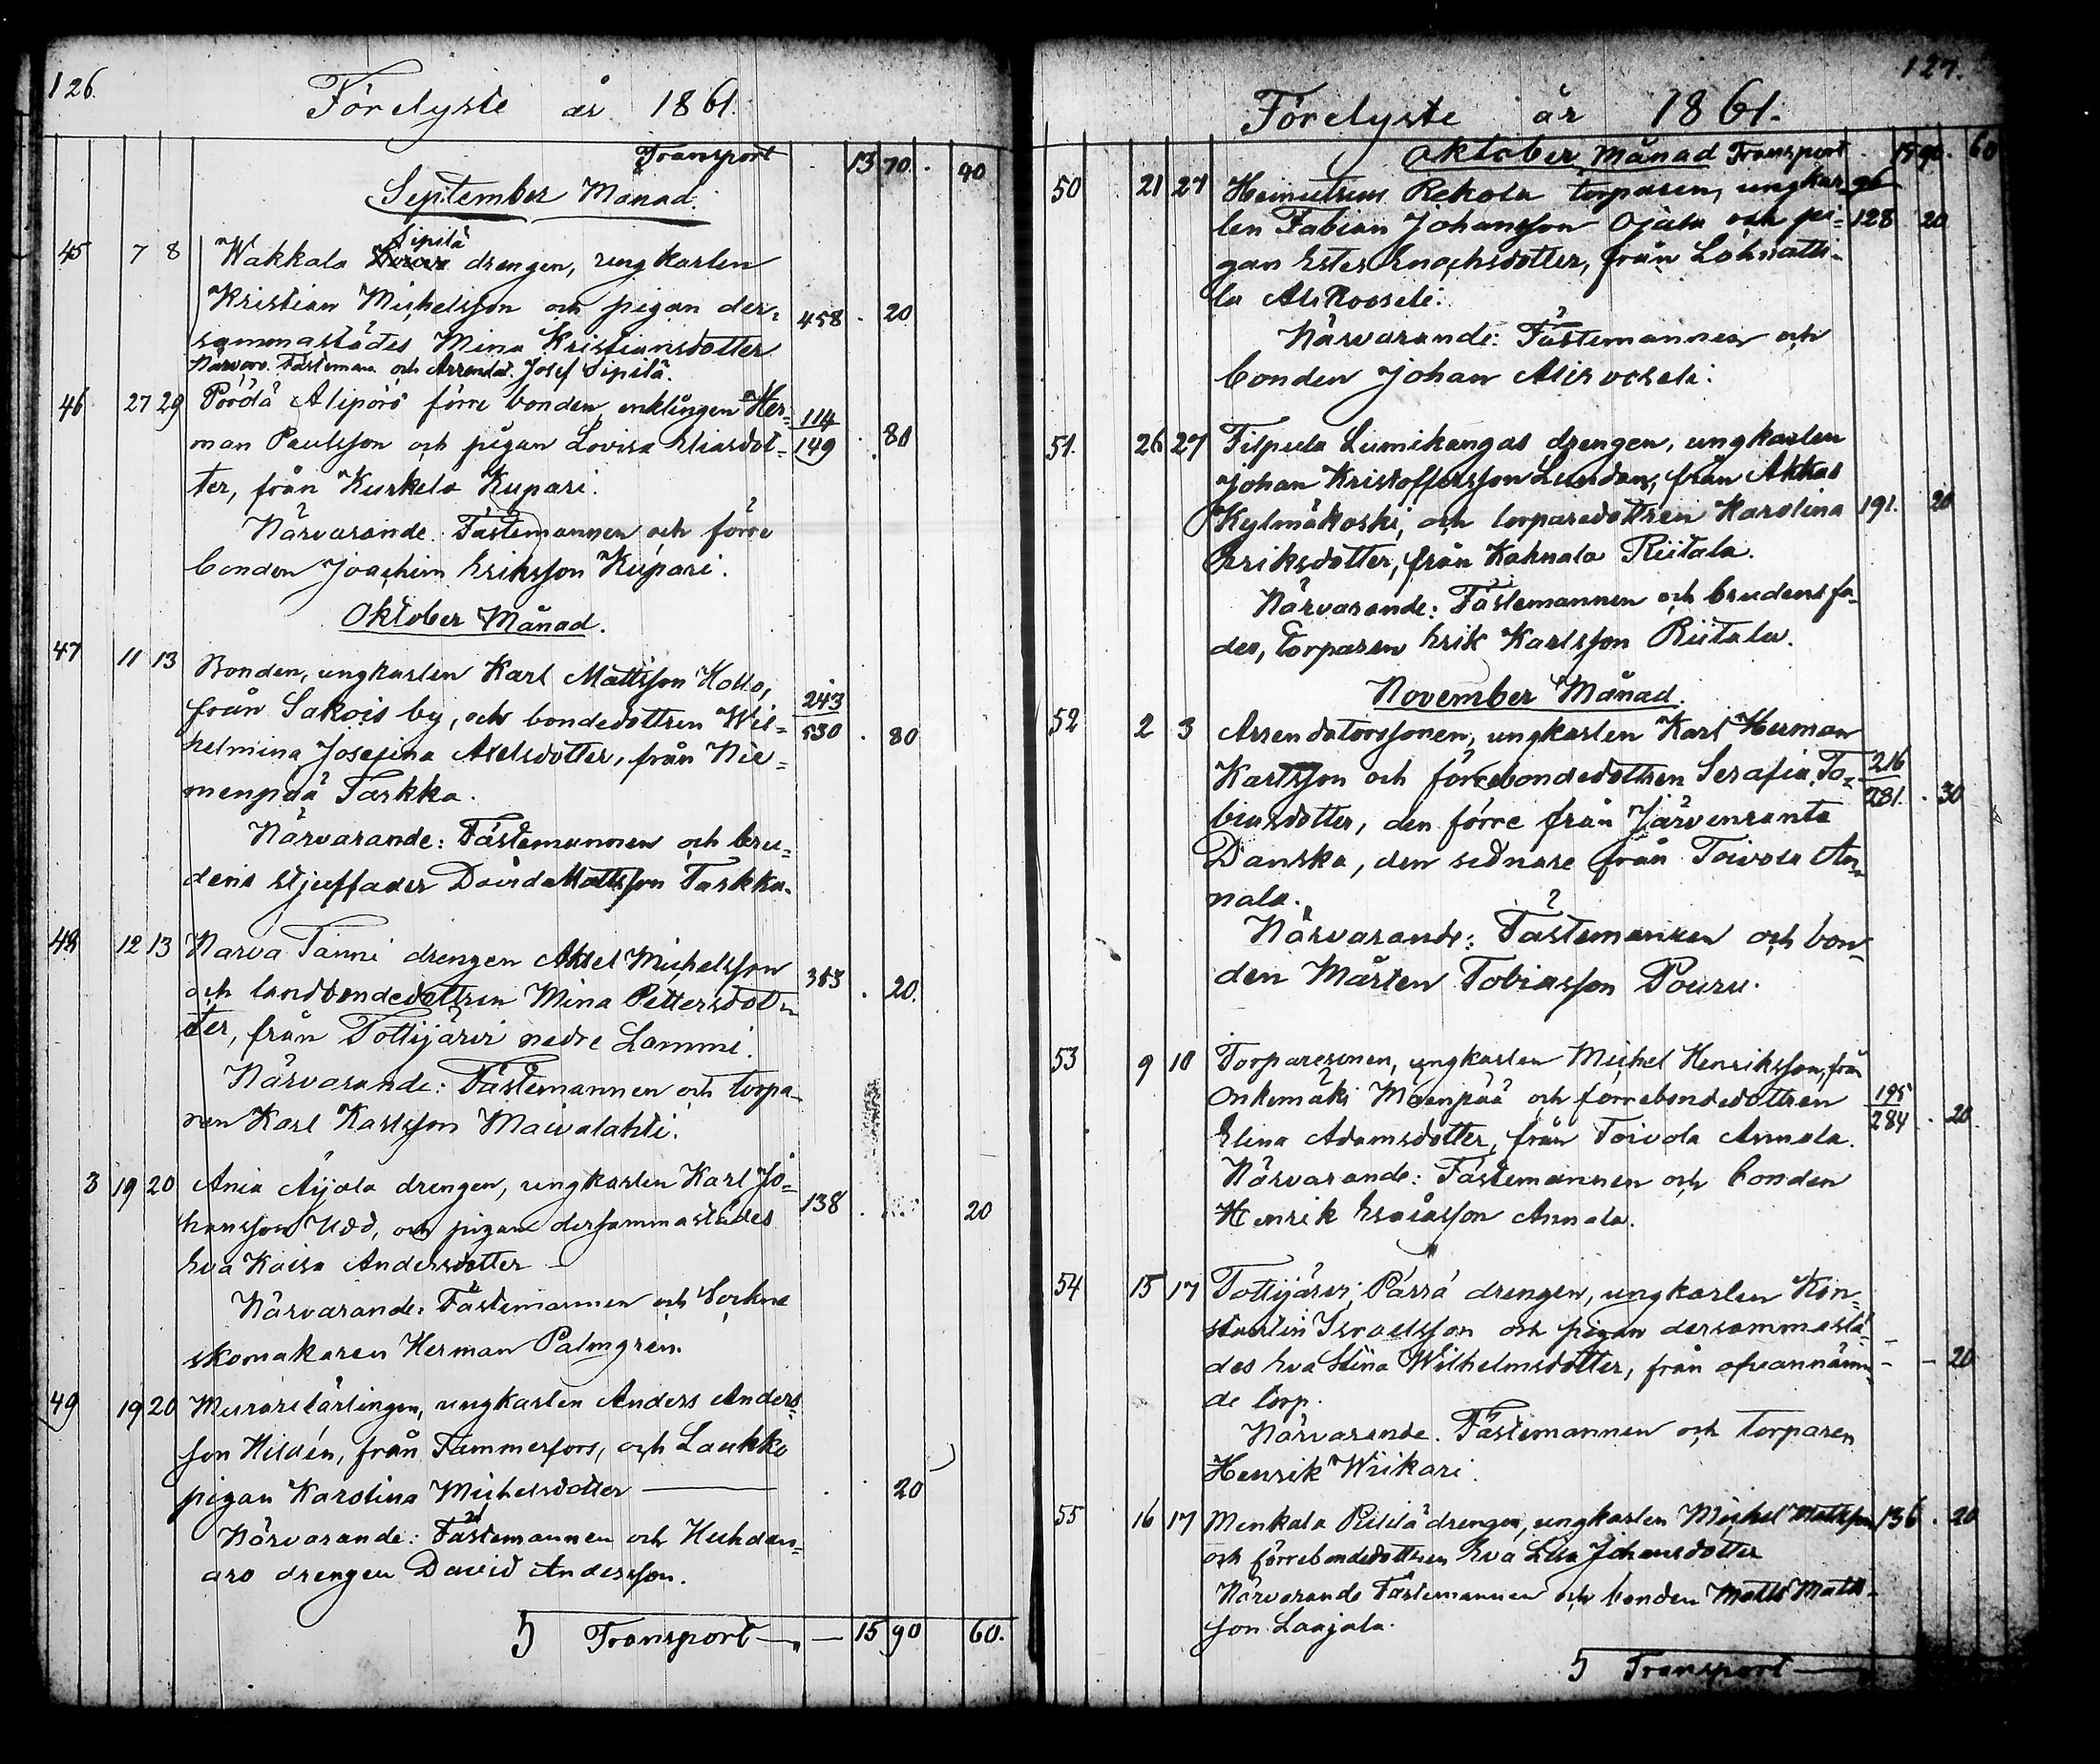 126.
Förelyste år 1861.
Transport . 13 70 . 40
September Månad.
Sipilä
45 7 8 Wakkala drengen, ungkarlen
Kristian Michelsson och pigan der= 458 . 20
sammastädes Mina Kristiansdotter
Närvar. Fästeman. och Arrendat. Josef Sipilä.
46 27 29 Pörölä Alipörö förre bonden, enklingen Her= 114
man Paulsson och pigan Lovisa Eliasdot= 149 . 80
ter, från Kurkela Kupari.
Närvarande. Fästemannen och förre
bonden Joachim Eriksson Kupari.
Oktober Månad.
47 11 13 Bonden, ungkarlen Karl Mattsson Kollo, 243
från Sakois by, och bondedottren Wil= 530 . 80
helmina Josefina Axelsdotter, från Nie=
menpää Tarkka.
Närvarande: Fästemannen och bru=
dens stjuffader David Mattsson Tarkka.
48 12 13 Narva Tanni drengen Aksel Michelsson 353
och landbondedottren Mina Pettersdot= . 20.
ter, från Tottijärvi nedre Lammi.
Närvarande: Fästemannen och torpa-
ren Karl Karlsson Maivalahti.
3 19 20 Ania Äijälä drengen, ungkarlen Karl Jo= 138 . 20
hansson Udd, och pigan dersammastädes
Eva Kaisa Andersdotter
Närvarande: Fästemannen och Sockne
skomakaren Herman Palmgren.
49 19 20 Murarelärlingen, ungkarlen Anders Anders=
son Hildén, från Tammerfors, och Laukko
pigan Karolina Michelsdotter — . 20
Närvarande: Fästemannen och Huhdan=
aro drengen David Andersson.
5 Transport — 15 90 60.
127.
Förelyste år 1861.
Oktober Månad Transport . 15 90 . 60
50 21 27 Heinutrius Rekola torparen, ungkar= 96
len Fabian Johansson Ojala och pi= 128 20
gan Ester Enochsdotter, från Lohnatti-
la Alirooseli.
Närvarande: Fästemannen och
bonden Johan Aliroseli.
51. 26 27 Filpula Lumikangas drengen, ungkarlen
Johan Kristoffersson Lundan, från Akkas
Kylmäkoski, och torparedottren Karolina 191. 20
Eriksdotter, från Kahnala Riitala.
Närvarande: Fästemannen och brudens fa-
der, torparen Erik Karlsson Riitala.
November Månad.
52 2 3 Arrendatorssonen, ungkarlen Karl Herman
Karlsson och förrebondedottren Serafia To= 216
biasdotter, den förre från Järvenranta 281. . 30
Danska, den sednare från Toivola An-
nala.
Närvarande: Fästemannen och bon-
den Mårten Tobiasson Pouru.
53 9 10 Torparesonen, ungkarlen Michel Henriksson, från
Onkemäki Mäenpää och förrebondedottren 195
Elina Adamsdotter, från Toivola Annala. 284 . 20.
Närvarande: Fästemannen och bonden
Henrik Esaiasson Annala.
54 15 17 Tottijärvi Pärrä drengen, ungkarlen Kon=
stantin Israelsson och pigan dersammastä-
des Eva Stina Wilhelmsdotter, från ofvannämn- - - 20
de torp.
Närvarande. Fästemannen och torparen
Henrik Wiikari.
55 16 17 Menkala Pillilä drengen, ungkarlen Michel Mattsson 136 . 20
och förrebondedottren Eva Lisa Johansdotter
Närvarande Fästemannen och bonden Matts Matts-
son Laajala.
5 Transport —